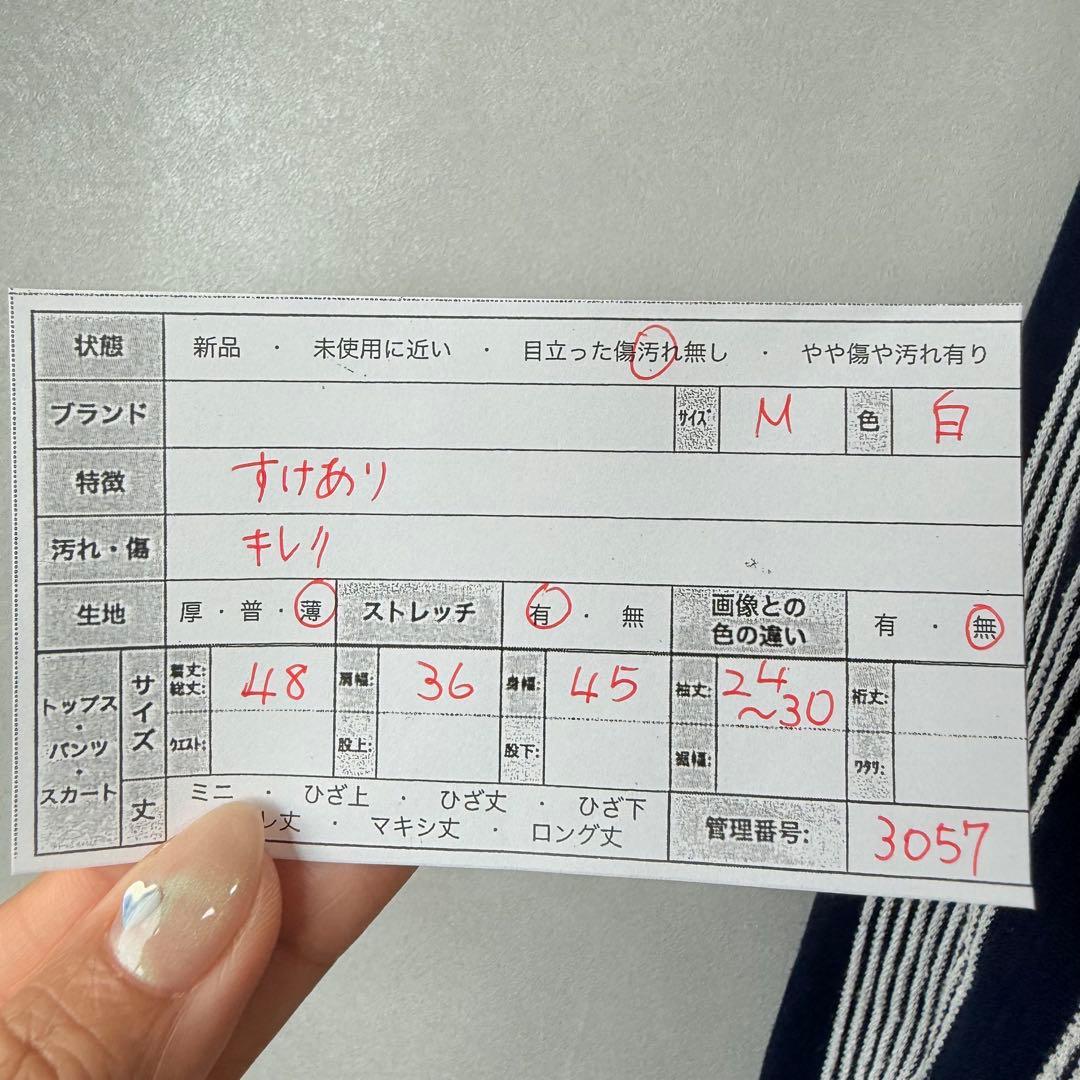 状態 新品 ・ 未使用に近い ・ 目立った傷汚れ無し ・ やや傷や汚れ有り
ブランド サイズ M 色 白
特徴 すけあり
汚れ・傷 キレイ
生地 厚・普・薄 ストレッチ 有・無 画像との色の違い 有・無
トップス・パンツ・スカート サイズ 着丈:総丈: 48 肩幅: 36 身幅: 45 袖丈: 24〜30 裄丈:
ウエスト: 股上: 股下: 裾幅: ワタリ:
丈 ミニ ・ ひざ上 ・ ひざ丈 ・ ひざ下
レ丈 ・ マキシ丈 ・ ロング丈 管理番号: 3057